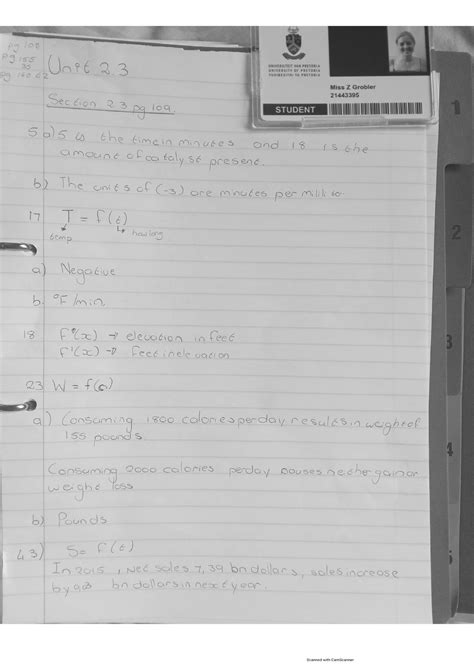 pg 108
pg 155
35
pg 160.62
Unit 2.3
UNIVERSITEIT VAN PRETORIA
UNIVERSITY OF PRETORIA
YUNIBESITHI YA PRETORIA
Miss Z Grobler
21443395
STUDENT
Section 2.3 pg 109.
5 a) 5 is the time in minutes and 18 is the
amount of catalyst present.
b) The units of (-3) are minutes per milli
17 T = f(t)
temp how long
a) Negative
b. °F/min.
18 (x) → elevation in feet
f'(x) → Feet in elevation
23 W = f(c)
a) Consuming 1800 calories per day results in weight of
155 pounds.
Consuming 2000 calories per day causes neither gain or
weight loss
b) Pounds
43) S= f(t)
In 2015, Net sales 7,39 bn dollars, sales increase
by bn dollars in next year.
1
2
3
4
5
Scanned with CamScanner